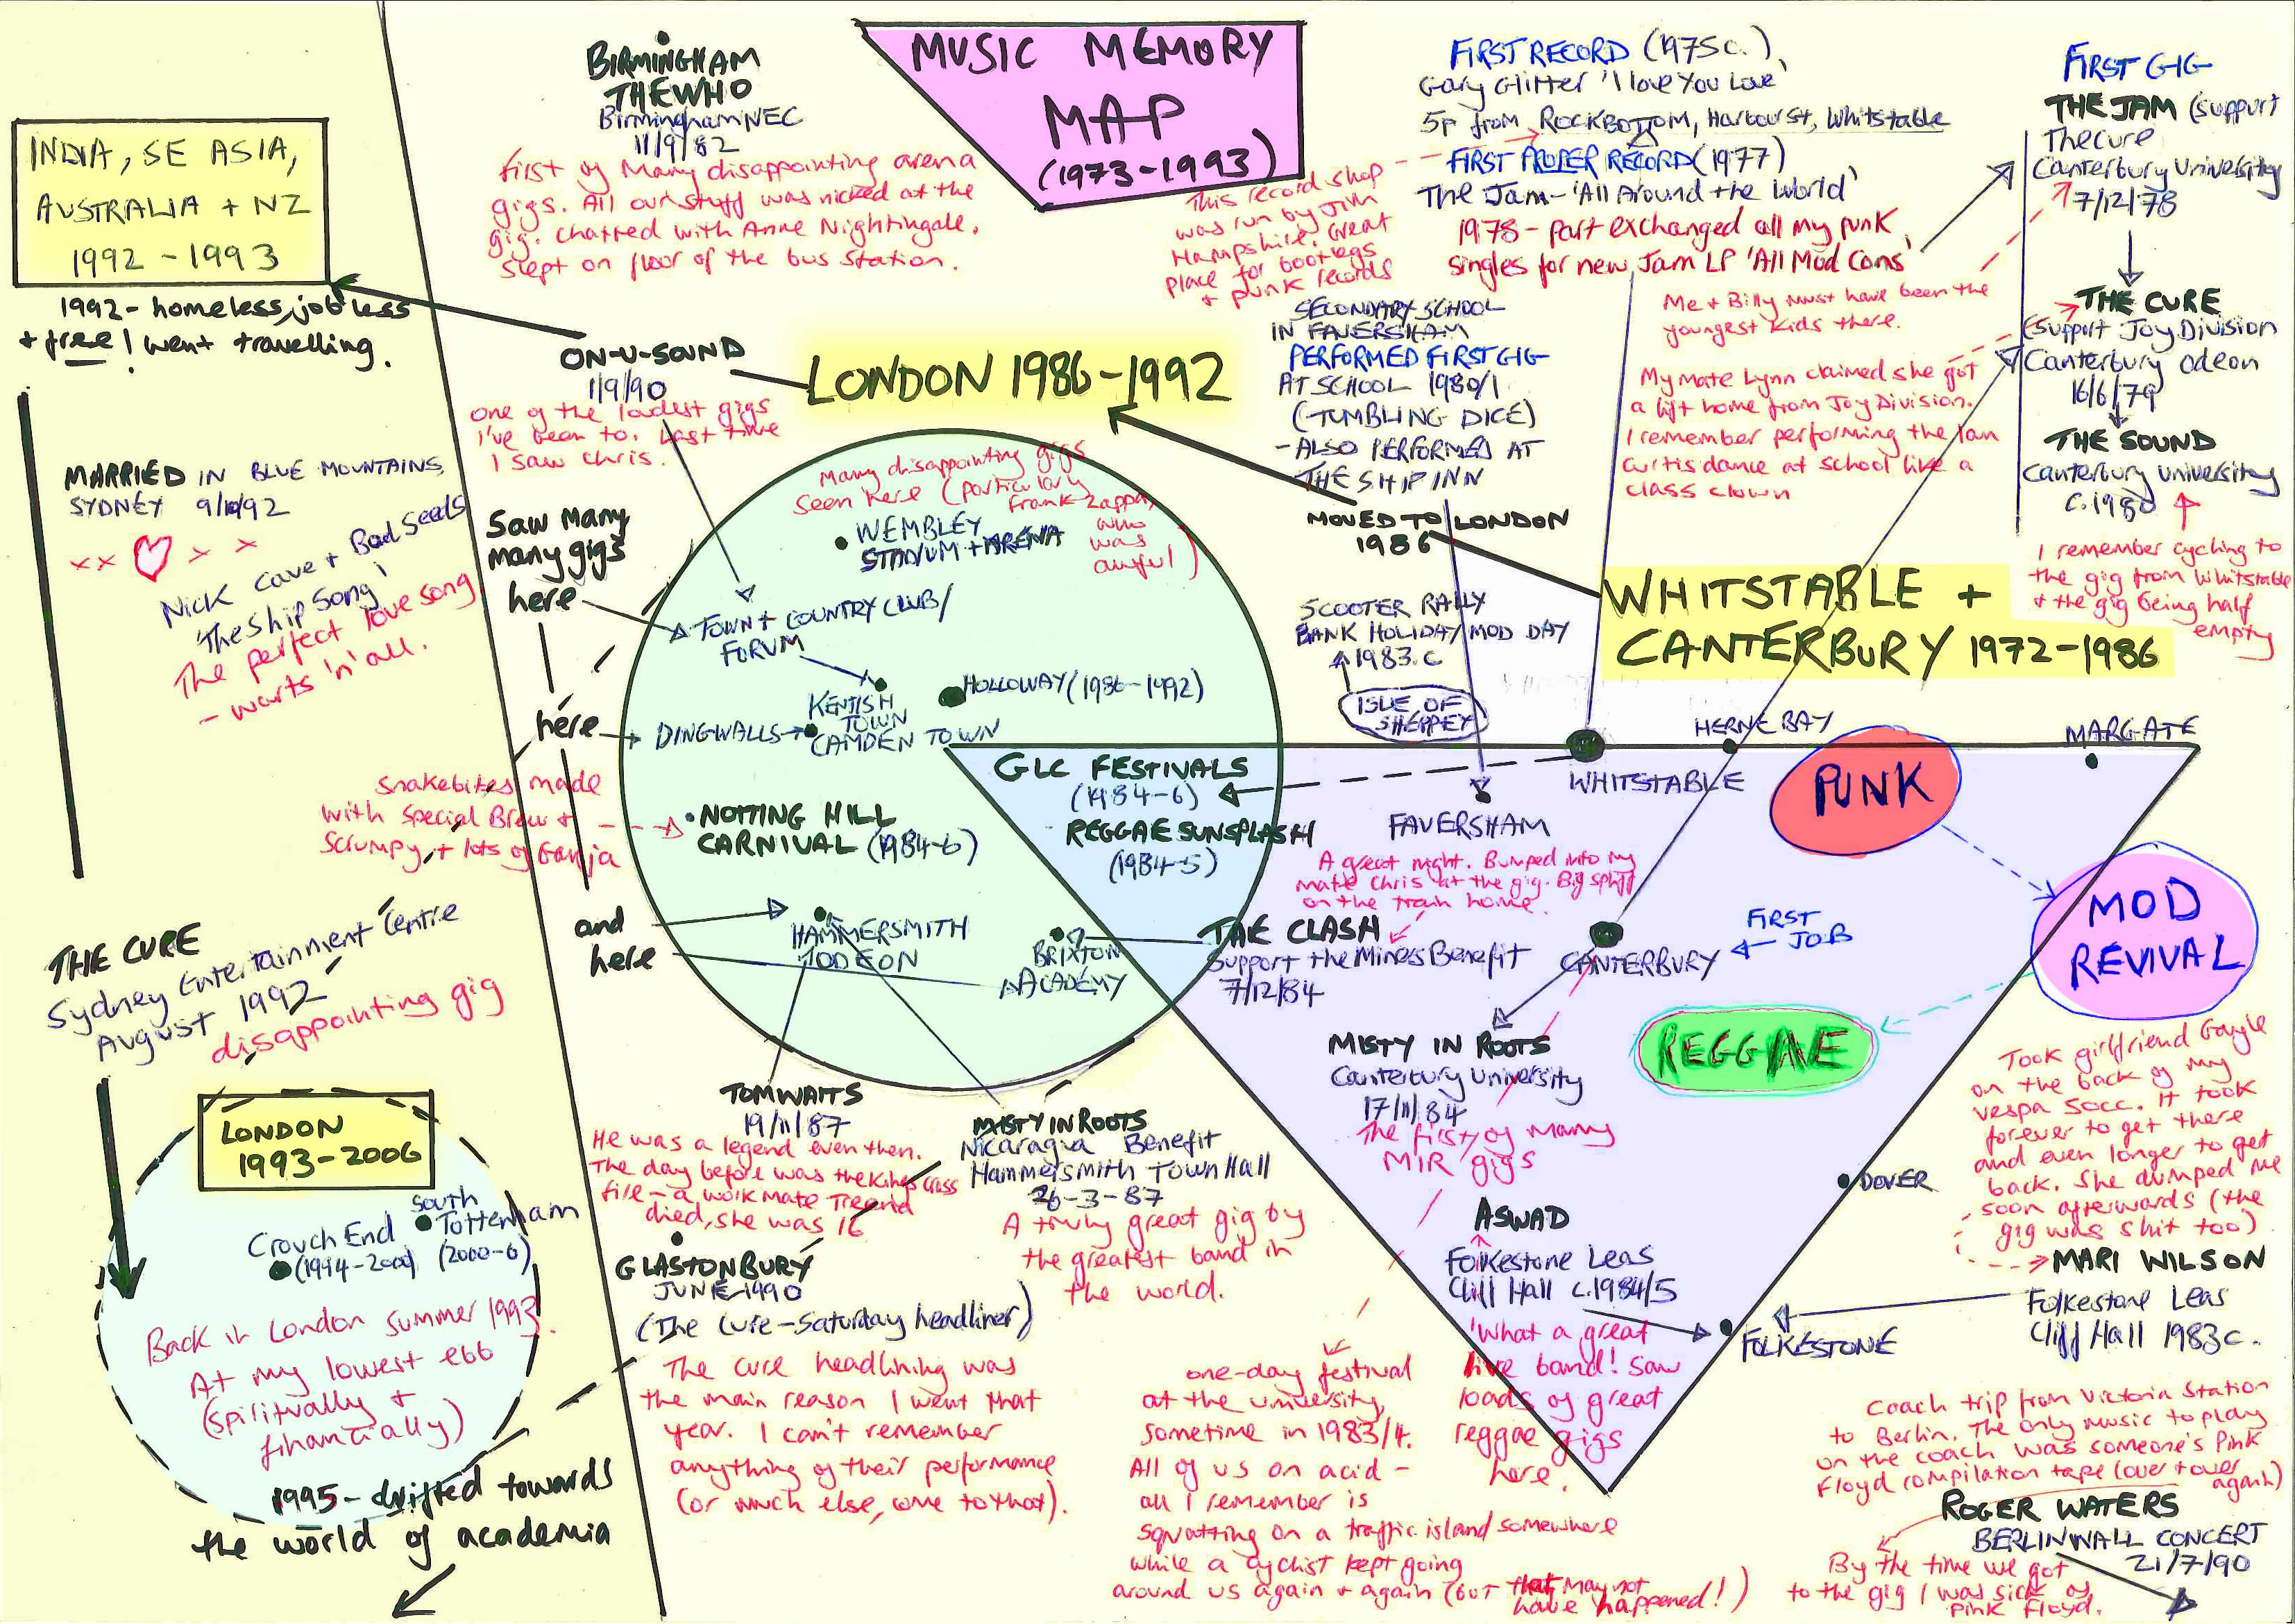 MUSIC MEMORY
MAP
(1973-1993)
BIRMINGHAM
THE WHO
Birmingham NEC
11/9/82
first of Many disappointing arena
gigs. All our stuff was nicked at the
gig. Chatted with Anne Nightingale.
Slept on floor of the bus station.
FIRST RECORD (1975c.),
Gary Glitter 'I love You Love'
5p from ROCKBOTTOM, Harbour St, Whitstable
FIRST PROPER RECORD (1977)
The Jam - 'All Around the World'
1978 - part exchanged all my punk
singles for new Jam LP 'All Mod Cons'
This record shop
was run by Jim
Hampshire. Great
place for bootlegs
+ punk records
FIRST GIG
THE JAM (support
The Cure
Canterbury University
7/12/78
Me + Billy must have been the
youngest kids there.
THE CURE
(Support Joy Division
Canterbury Odeon
16/6/79
My mate Lynn claimed she got
a lift home from Joy Division.
I remember performing the Ian
Curtis dance at school like a
class clown
THE SOUND
Canterbury University
c.1980
I remember cycling to
the gig from Whitstable
+ the gig being half
empty
INDIA, SE ASIA,
AUSTRALIA + NZ
1992 - 1993
1992 - homeless, jobless
+ free! I went travelling.
MARRIED IN BLUE MOUNTAINS,
SYDNEY 9/10/92
xx x x
Nick Cave + Bad Seeds
'The Ship Song'
The perfect love song
- warts 'n' all.
THE CURE
Sydney Entertainment Centre
August 1992
disappointing gig
LONDON
1993-2006
South
Tottenham
(2000-6)
Crouch End
(1994-2000)
Back in London summer 1993.
At my lowest ebb
(spiritually +
financially)
1995 - drifted towards
the world of academia
ON-U-SOUND
1/9/90
one of the loudest gigs
I've been to. Last time
I saw Chris.
LONDON 1986-1992
SECONDARY SCHOOL
IN FAVERSHAM
PERFORMED FIRST GIG
AT SCHOOL 1980/1
(TUMBLING DICE)
- ALSO PERFORMED AT
THE SHIP INN
MOVED TO LONDON
1986
SCOOTER RALLY
BANK HOLIDAY MOD DAY
1983.c
ISLE OF
SHEPPEY
WHITSTABLE +
CANTERBURY 1972-1986
Many disappointing gigs
seen here (particularly
Frank Zappa,
who
was
awful)
WEMBLEY
STADIUM + ARENA
Saw many
many gigs
here
here
and
here
TOWN + COUNTRY CLUB/
FORUM
KENTISH
TOWN
HOLLOWAY (1986-1992)
DINGWALLS
CAMDEN TOWN
Snakebites made
with Special Brew +
Scrumpy + lots of Ganja
NOTTING HILL
CARNIVAL (1984-6)
GLC FESTIVALS
(1984-6)
REGGAE SUNSPLASH
(1984-5)
HAMMERSMITH
ODEON
BRIXTON
ACADEMY
WHITSTABLE
HERNE BAY
MARGATE
FAVERSHAM
PUNK
MOD
REVIVAL
REGGAE
A great night. Bumped into my
mate Chris at the gig. Big spliff
on the train home.
THE CLASH
Support the Miners Benefit
7/12/84
CANTERBURY
FIRST
JOB
MISTY IN ROOTS
Canterbury University
17/11/84
The first of many
MIR gigs
ASWAD
Folkestone Leas
Cliff Hall c.1984/5
'What a great
live band! Saw
loads of great
reggae gigs
here.
DOVER
FOLKESTONE
Took girlfriend Gayle
on the back of my
vespa 50cc. It took
forever to get there
and even longer to get
back. She dumped me
soon afterwards (the
gig was shit too)
MARI WILSON
Folkestone Leas
Cliff Hall 1983c.
TOM WAITS
19/11/87
He was a legend even then.
The day before was the Kings Cross
fire - a work mate
died, she was 16
MISTY IN ROOTS
Nicaragua Benefit
Hammersmith Town Hall
26-3-87
A truly great gig by
the greatest band in
the world.
GLASTONBURY
JUNE 1990
(The Cure - Saturday headliner)
The Cure headlining was
the main reason I went that
year. I can't remember
anything of their performance
(or much else, come to that).
one-day festival
at the university,
sometime in 1983/4.
All of us on acid -
all I remember is
squatting on a traffic island somewhere
while a cyclist kept going
around us again + again (but that may not
have happened!)
Coach trip from Victoria Station
to Berlin. The only music to play
on the coach was someone's Pink
Floyd compilation tape (over + over
again)
ROGER WATERS
BERLIN WALL CONCERT
21/7/90
By the time we got
to the gig I was sick of
Pink Floyd.